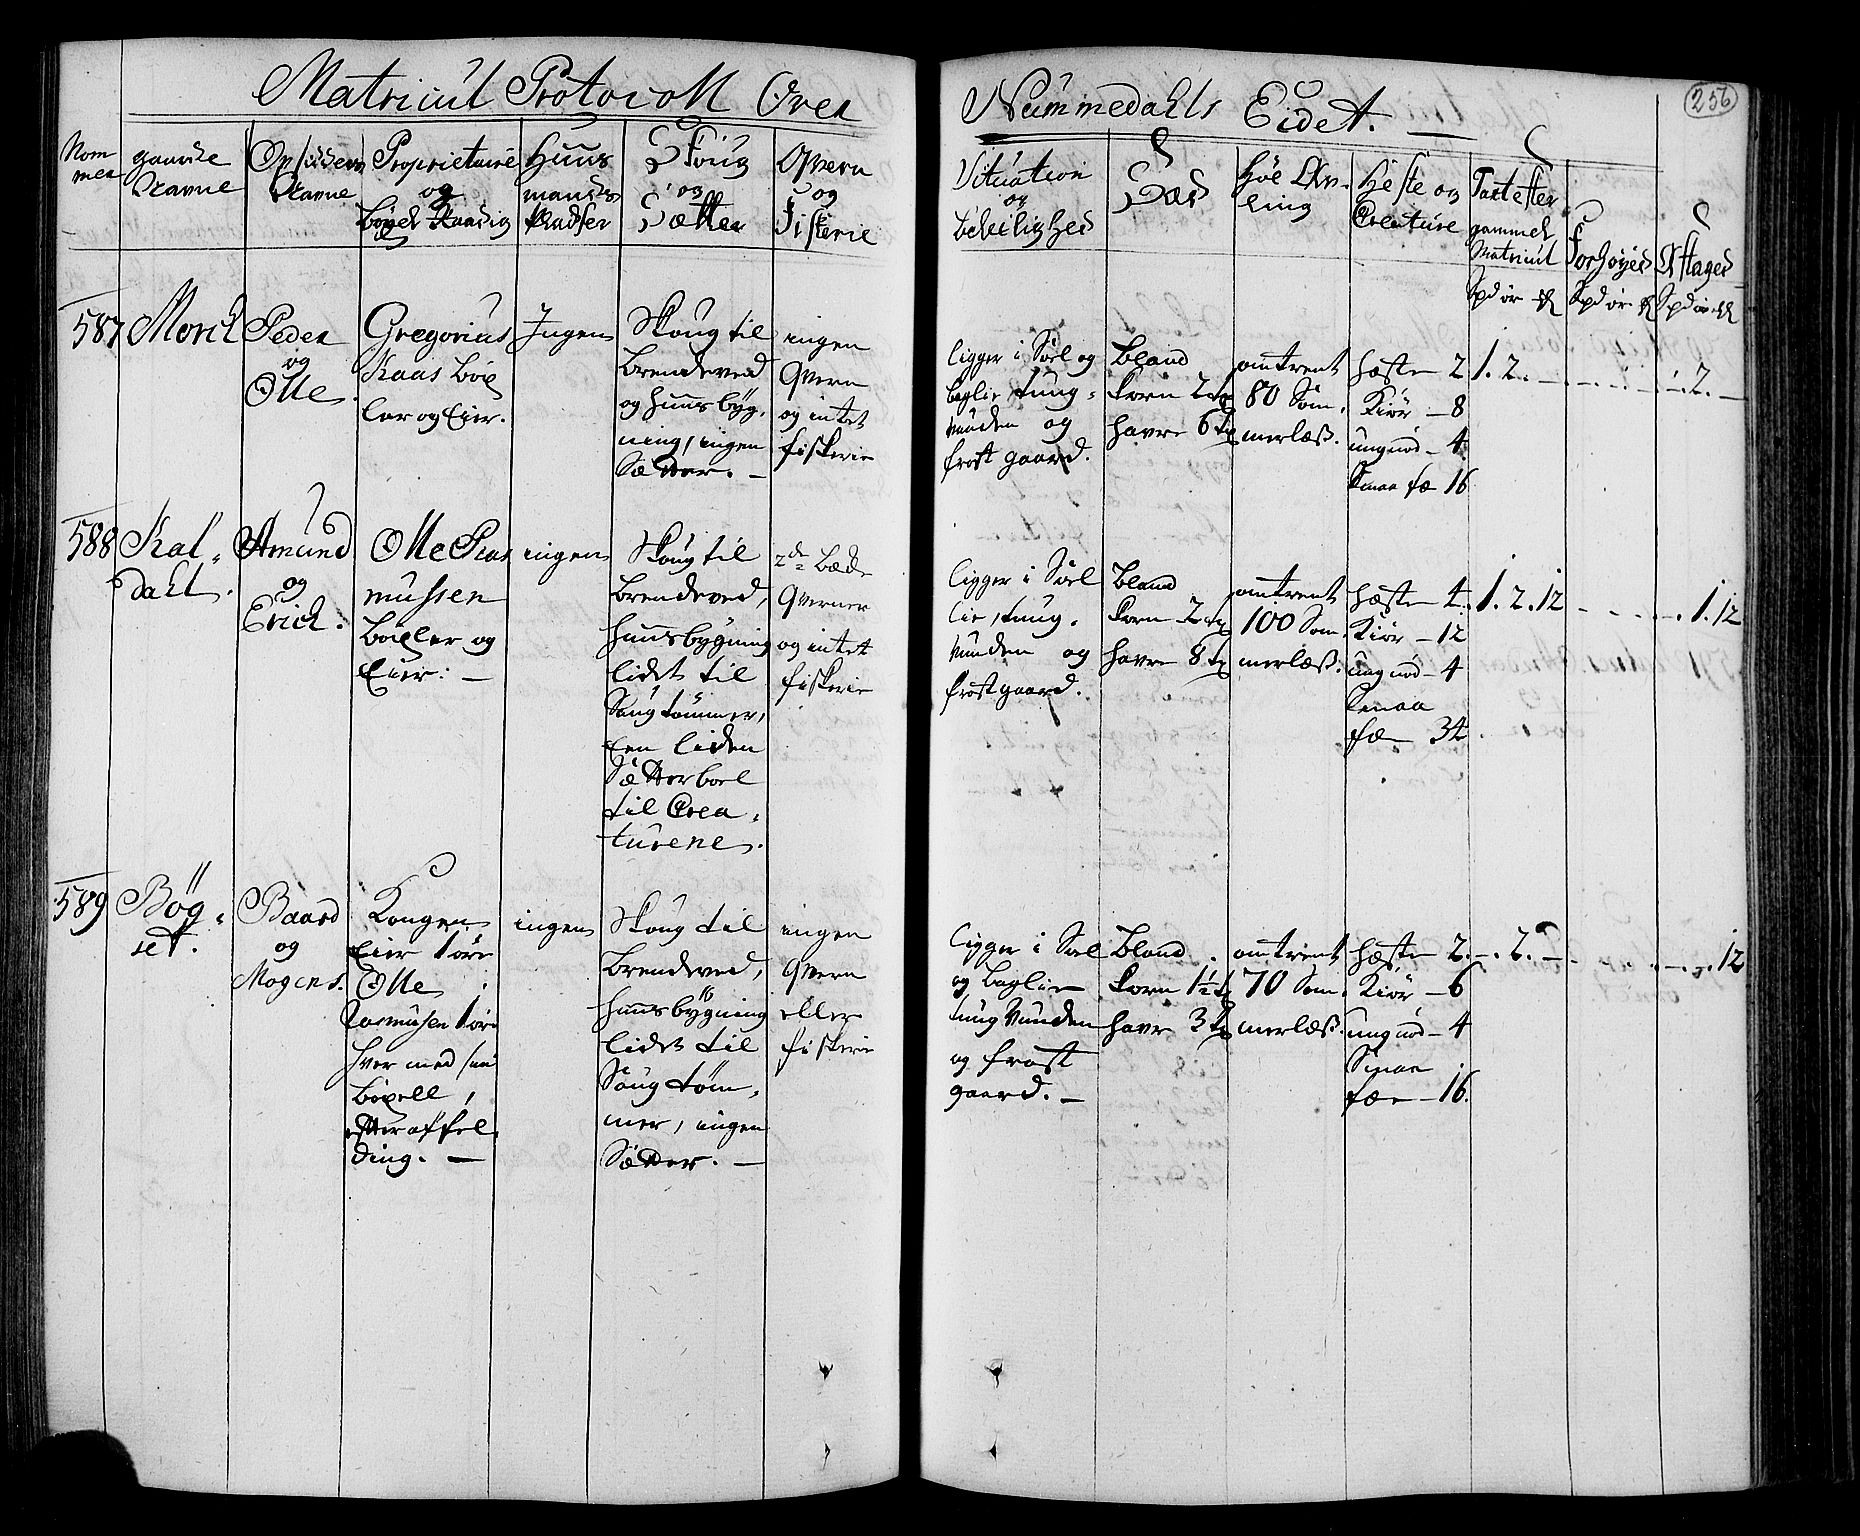 Matricul Protocoll Over
Nummedahls Eidet.
256
Nom
mer
gaarde
Navne
Opsidderes
Navne
Proprietairie
og
Böxel Raadig
Huus
mands
Pladser
Skoug
og
Sætter
Qvern
og
Fiskerie
Situation
og
Beleilighed
Sæd
Höe Av-
ling
Heste og
Creature
Taxt efter
gammel
Matricul
Spd ör
Forhöyed
Spd ör
Aftaged
Spd ör
587
Morch
Peder
og
Olle.
Gregorius
Kaas Böx
ler og Eier.
Ingen
Skoug til
brendeved
og huusbÿg,
ning, ingen
Sætter. -
ingen
Qvern
og intet
fiskerie
ligger i Soel og
baglie, tung,
vunden og
frost gaard.
bland
korn 2 tr
havre 6 tr
omtrent
80 Som,
merlæss.
hæster 2
Kiör - 8
ungnöd - 4
Smaa fæ 16
1. 2. -
- . 2. -
588
Kal,
dahl.
Amund
og
Erich.
Olle Ras
mussen
Böxler og
Eier: -
ingen
Skoug til
brendeved,
huusbygning
lidet til
Saugtömmer,
Een liden
Sætterboel
til Crea,
turene.
2de Bæde
Qverner
og intet
fiskerie
ligger i Soel
lie, tung,
vunden og
frostgaard.
bland
korn 2 tr
havre 8 tr
omtrent
100 Som,
merlæss.
hæster 4.
Kiör - 12
ungnöd - 4
Smaa
fæ - 34
1. 2. 12
- . 1. 12
589
Bög,
set.
Baard
og
Mogens.
Kongen
Eier 1 öre
Olle
Rasmusen 1 öre
hver med sin
böxell,
efter affel,
ding. -
ingen
Skoug til
brendeved,
huusbÿgning
lidet til
Saugtöm,
mer, ingen
Sætter. -
ingen
Qvern
eller
fiskerie
ligger i Soel
og baglie
tung vunden
og frost
gaard. -
bland
korn 1½ tr
havre 3 tr
omtrent
70 Som,
merlæss.
hæster 2.
Kiör - 6
ungnöd - 4
Smaa
fæe - 16.
- . 2. -
- . - . 12